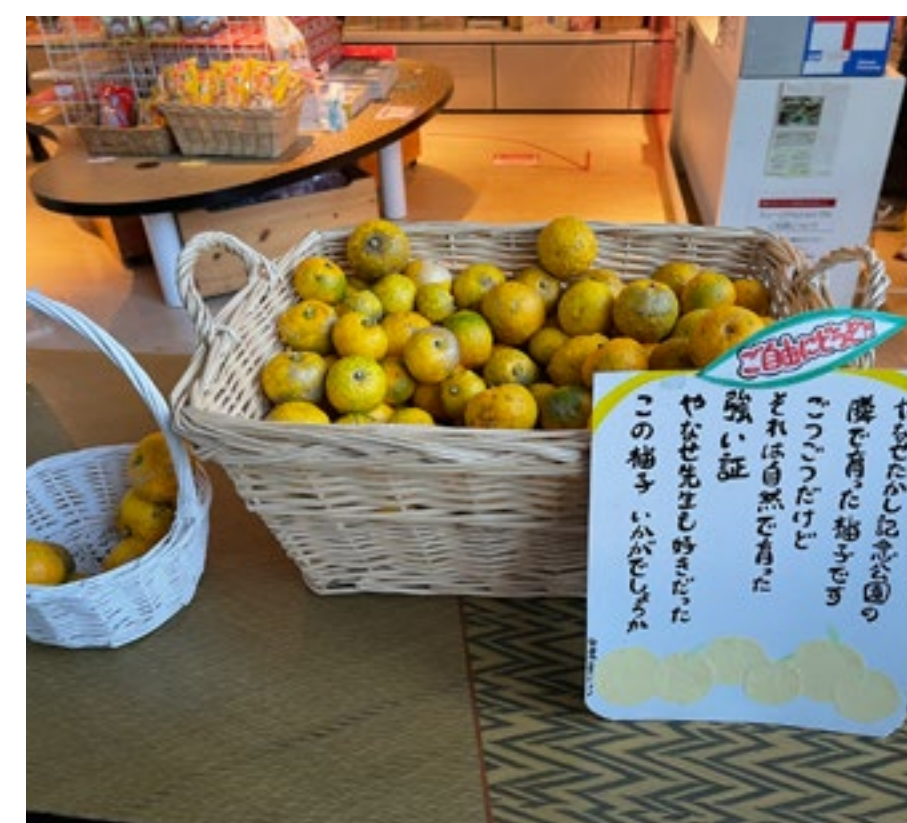 ご自由にどうぞ
やなせたかし記念公園の
隣で育った柚子です
ごつごつだけど
それは自然で育った
強い証
やなせ先生も好きだった
この柚子 いかがでしょうか